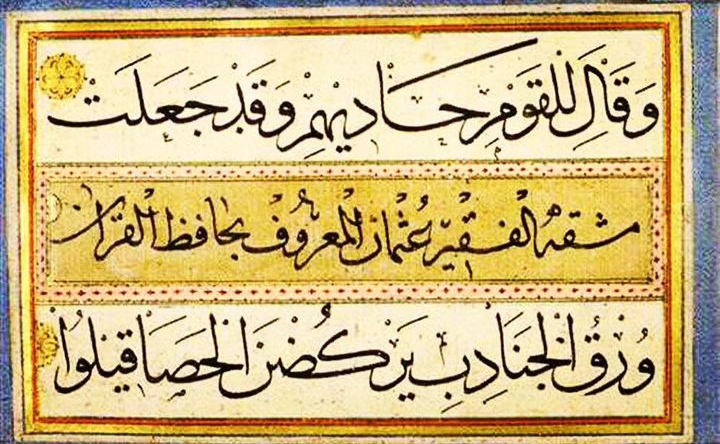 وَقَالَ لِلْقَوْمِ حَادِيهِمْ وَقَدْ جَعَلَتْ
مشقه الفقير عثمان المعروف بحافظ القرآن
وُرْقُ الْجَنَادِبِ يَرْكُضْنَ الْحَصَا قِيلُوا